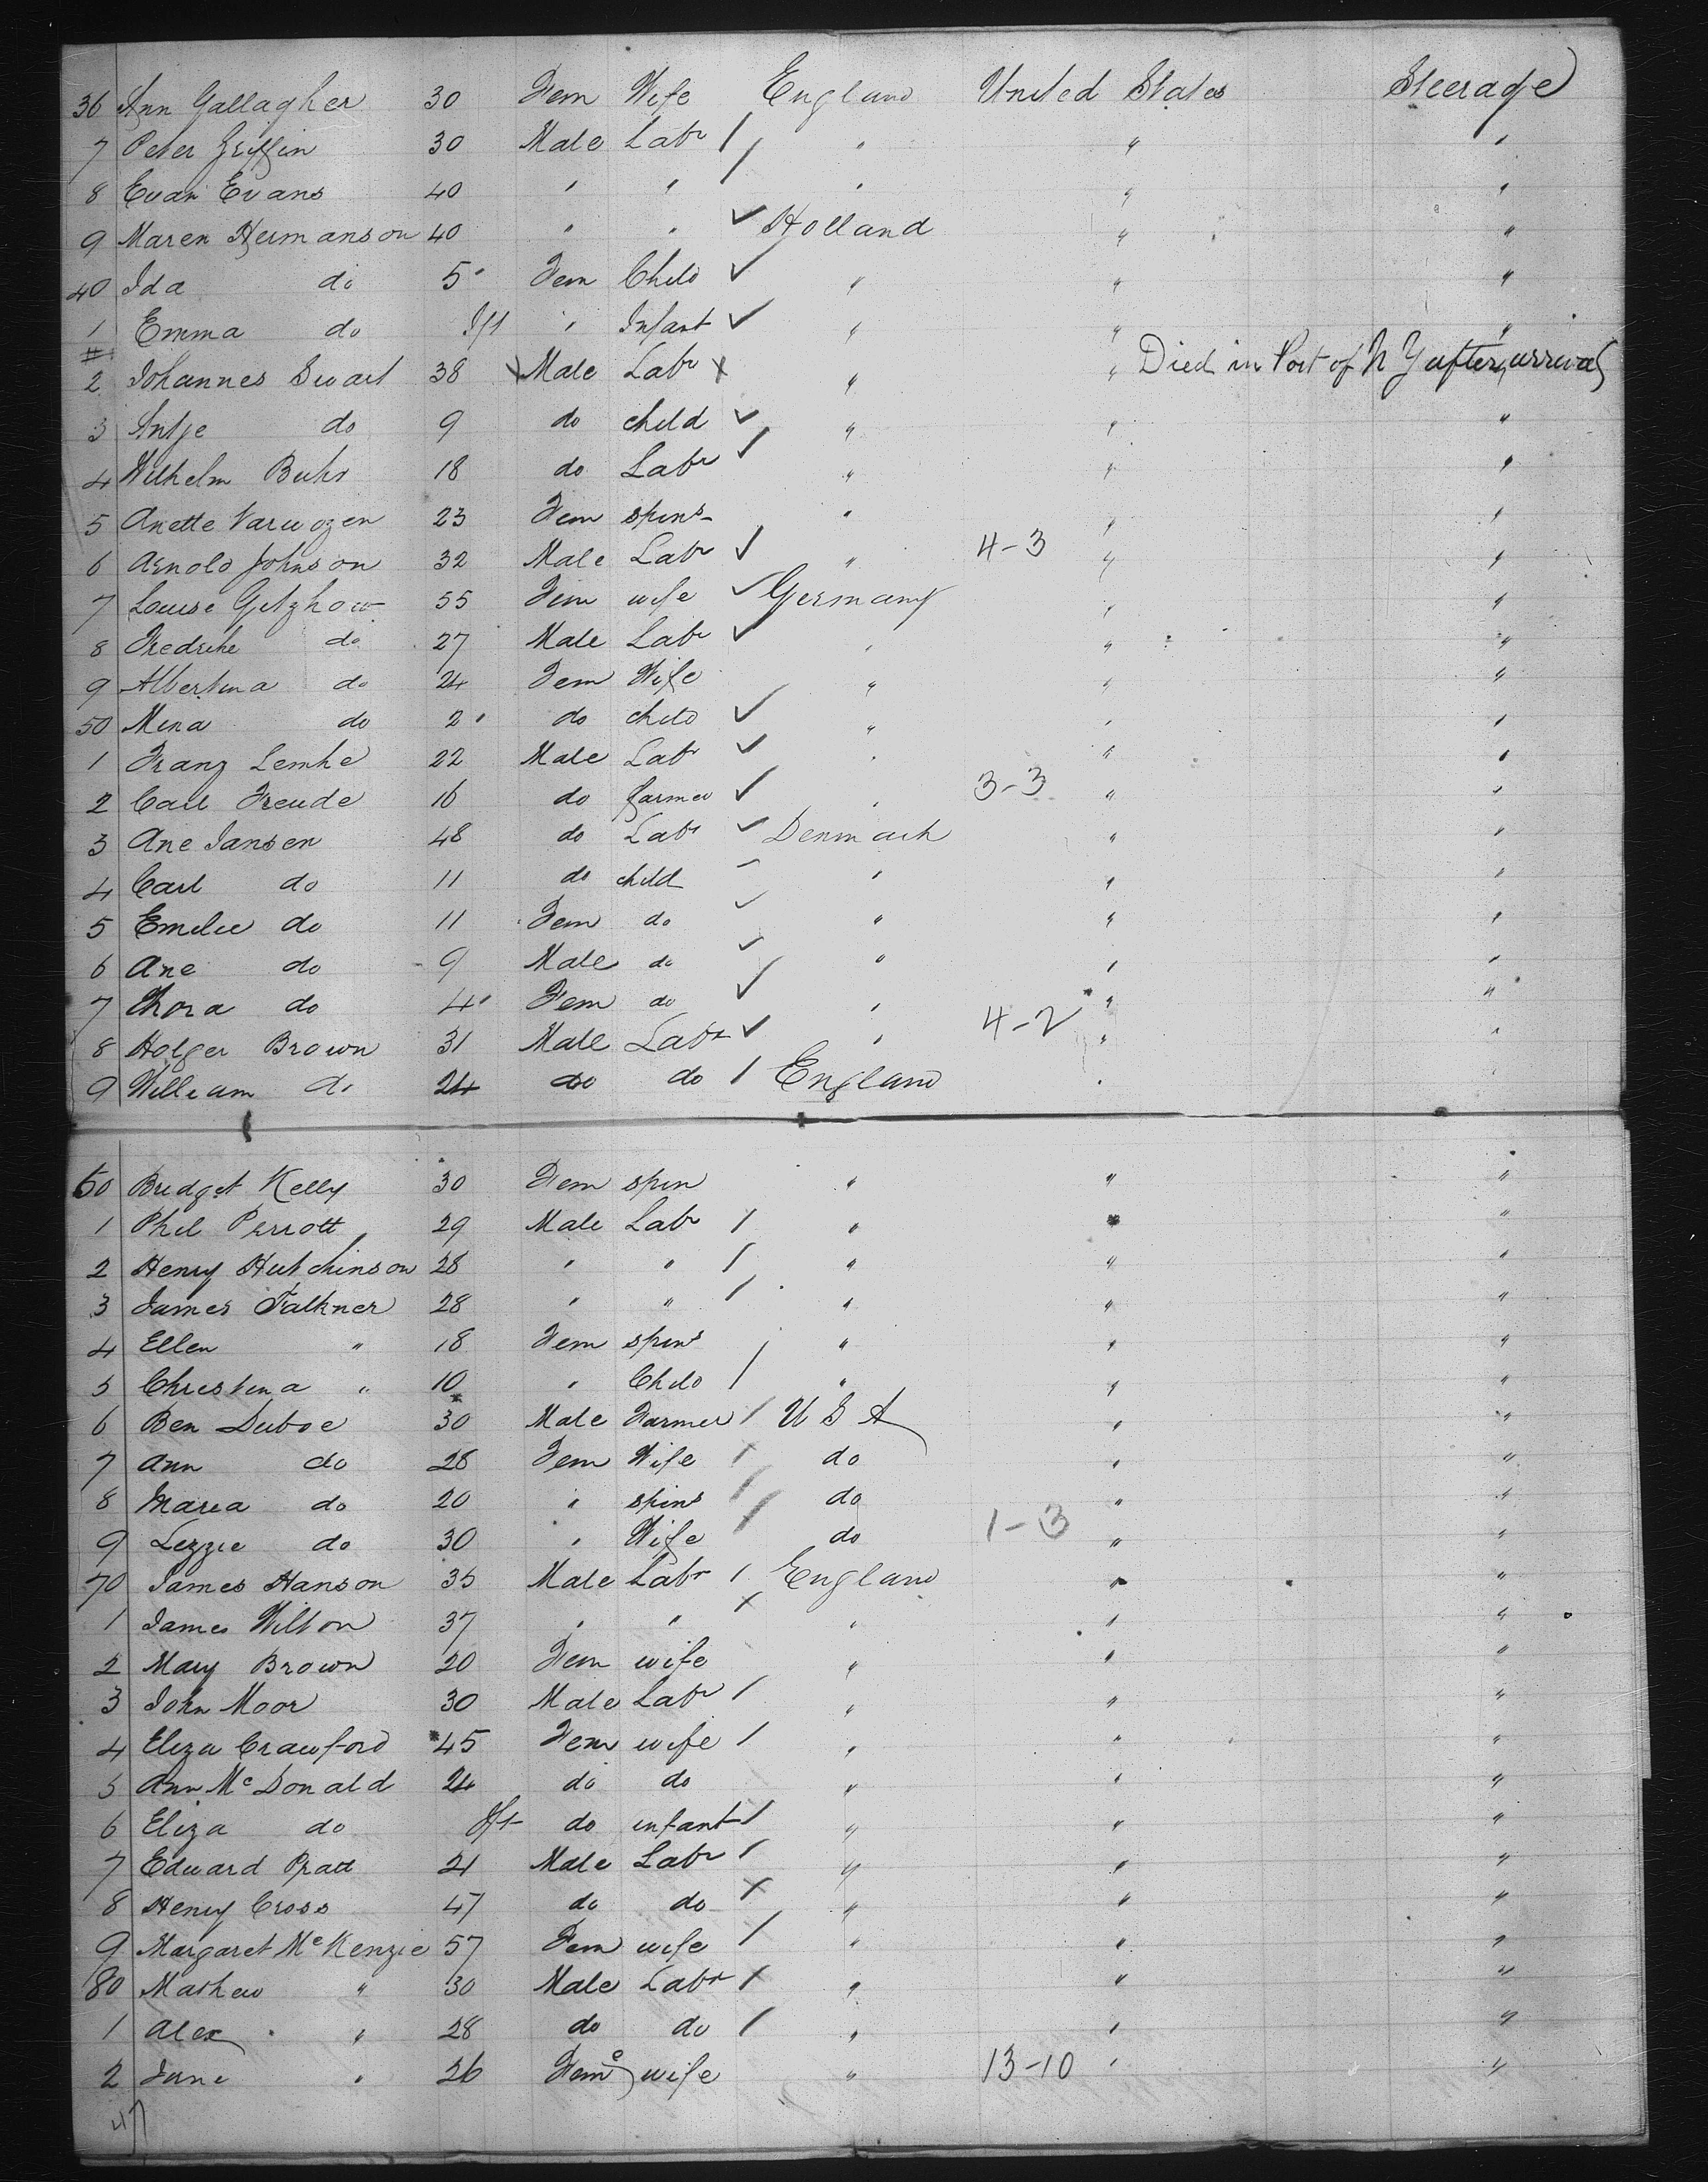 36 Ann Gallagher 30 Fem Wife England United States Steerage
7 Peter Griffin 30 Male Labr / " " "
8 Evan Evans 40 " " / " " "
9 Maren Hermanson 40 " " ✓ Holland " "
40 Ida do 5 Fem Child ✓ " " "
1 Emma do Inft " Infant ✓ " " "
2 Johannes Swart 38 Male Labr x " " Died in Port of N Y after arrival
3 Antje do 9 do child ✓ " " "
4 Wilhelm Buhr 18 do Labr ✓ " " "
5 Anette 23 Fem spins " " "
6 Arnold Johnson 32 Male Labr ✓ " 4-3 " "
7 Louise 55 Fem wife ✓ Germany " "
8 do 27 Male Labr ✓ " " "
9 Albertina do 24 Fem Wife " " "
50 Mina do 2 do child ✓ " " "
1 Franz Lemke 22 Male Labr ✓ " " "
2 Carl Freude 16 do farmer ✓ " 3-3 " "
3 Ane Jansen 48 do Labr ✓ Denmark " "
4 Carl do 11 do child " " "
5 Emilie do 11 Fem do ✓ " " "
6 Ane do 9 Male do ✓ " " "
7 Thora do 4 Fem do ✓ " " "
8 Holger Brown 31 Male Labr ✓ " 4-2 " "
9 William do 24 do do / England "
60 Bridget Kelly 30 Fem spin " " "
1 Phil Perrott 29 Male Labr / " " "
2 Henry Hutchinson 28 " " / " " "
3 James Falkner 28 " " / " " "
4 Ellen " 18 Fem spins " " "
5 Christina " 10 " Child / " " "
6 Ben Duboe 30 Male Farmer / U S A " "
7 Ann do 28 Fem Wife / do " "
8 Maria do 20 " spins / do " "
9 Lizzie do 30 " Wife / do 1-3 " "
70 James Hanson 35 Male Labr / England " "
1 James Wilton 37 " " x " " "
2 Mary Brown 20 Fem wife " " "
3 John Moor 30 Male Labr / " " "
4 Eliza Crawford 45 Fem wife / " " "
5 Ann McDonald 24 do do " " "
6 Eliza do Inft do infant / " " "
7 Edward Pratt 21 Male Labr / " " "
8 Henry Cross 47 do do x " " "
9 Margaret McKenzie 57 Fem wife / " " "
80 Mathew " 30 Male Labr / " " "
1 Alex " 28 do do / " " "
2 Jane " 26 Fem wife " 13-10 " "
47